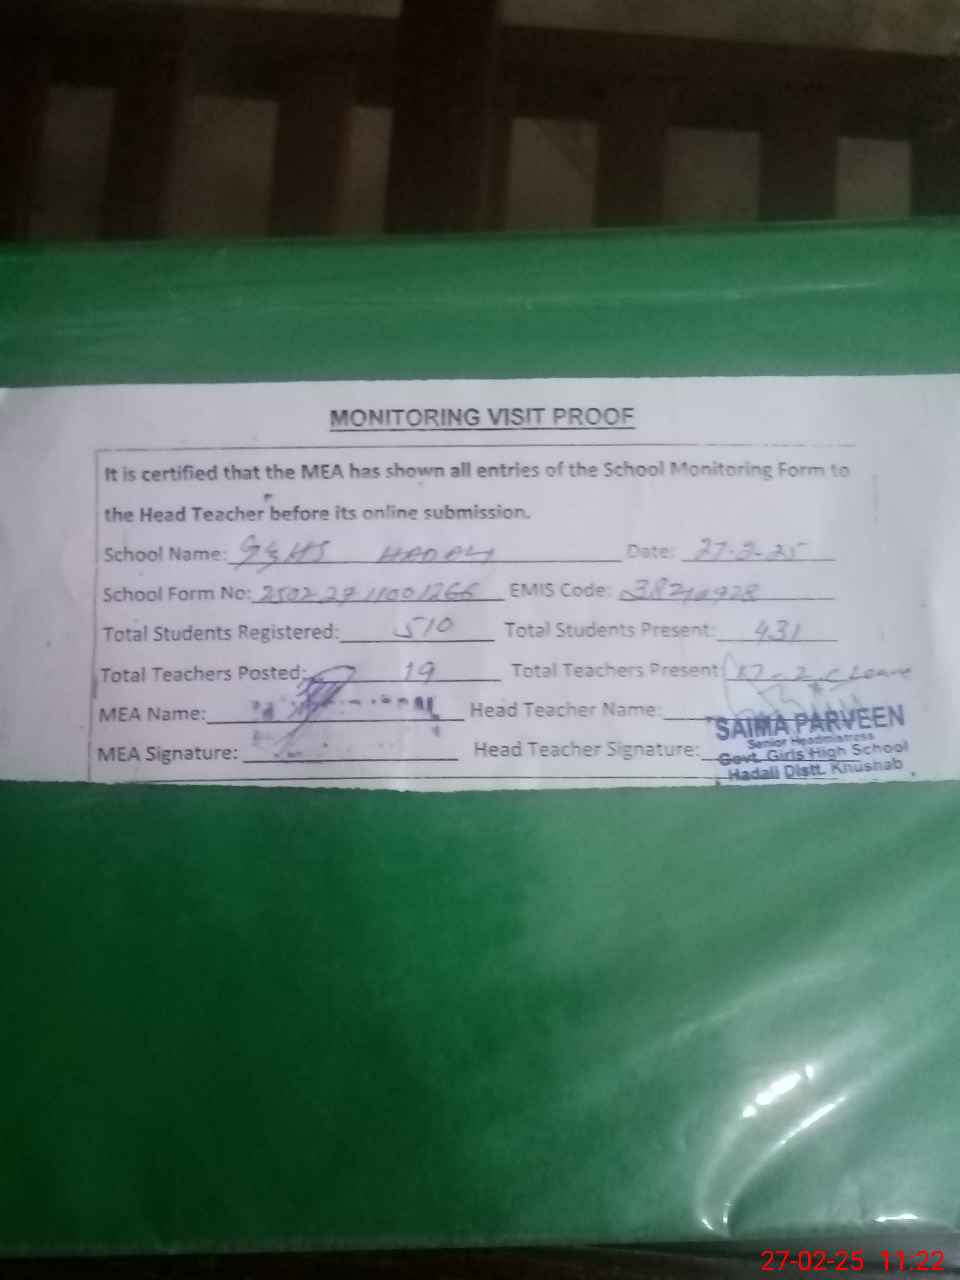 MONITORING VISIT PROOF
It is certified that the MEA has shown all entries of the School Monitoring Form to
the Head Teacher before its online submission.
School Name: GGHS HADALI Date: 27-2-25
School Form No: 2502 27 11001266 EMIS Code: 38210928
Total Students Registered: 510 Total Students Present: 431
Total Teachers Posted: 19 Total Teachers Present: 17-2 Leave
MEA Name: Head Teacher Name:
MEA Signature: Head Teacher Signature:
SAIMA PARVEEN
Senior Headmistress
Govt. Girls High School
Hadali Distt. Khushab
27-02-25 11:22